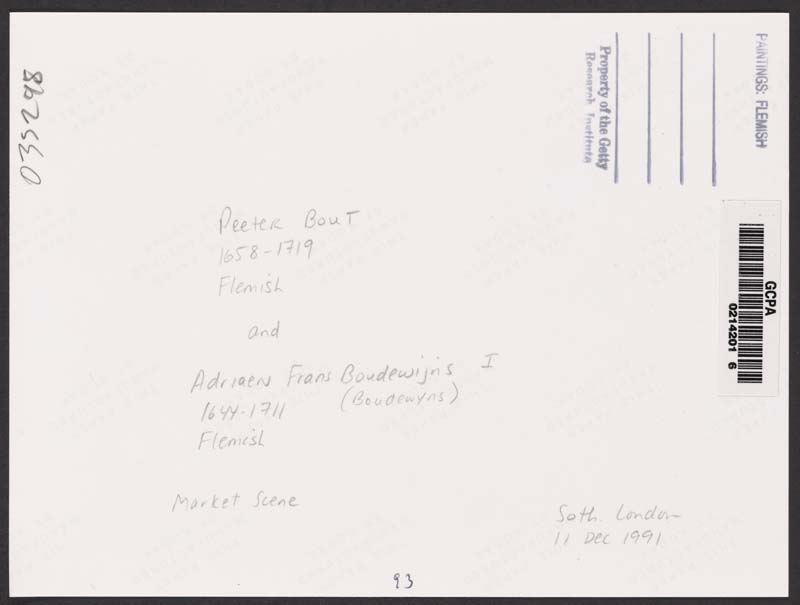 035298
PAINTINGS: FLEMISH
Property of the Getty
Research Institute
GCPA
0214201 6
Peeter Bout
1658-1719
Flemish
and
Adriaen Frans Boudewijns I
1644-1711 (Boudewyns)
Flemish
Market Scene
Soth. London
11 Dec 1991
93